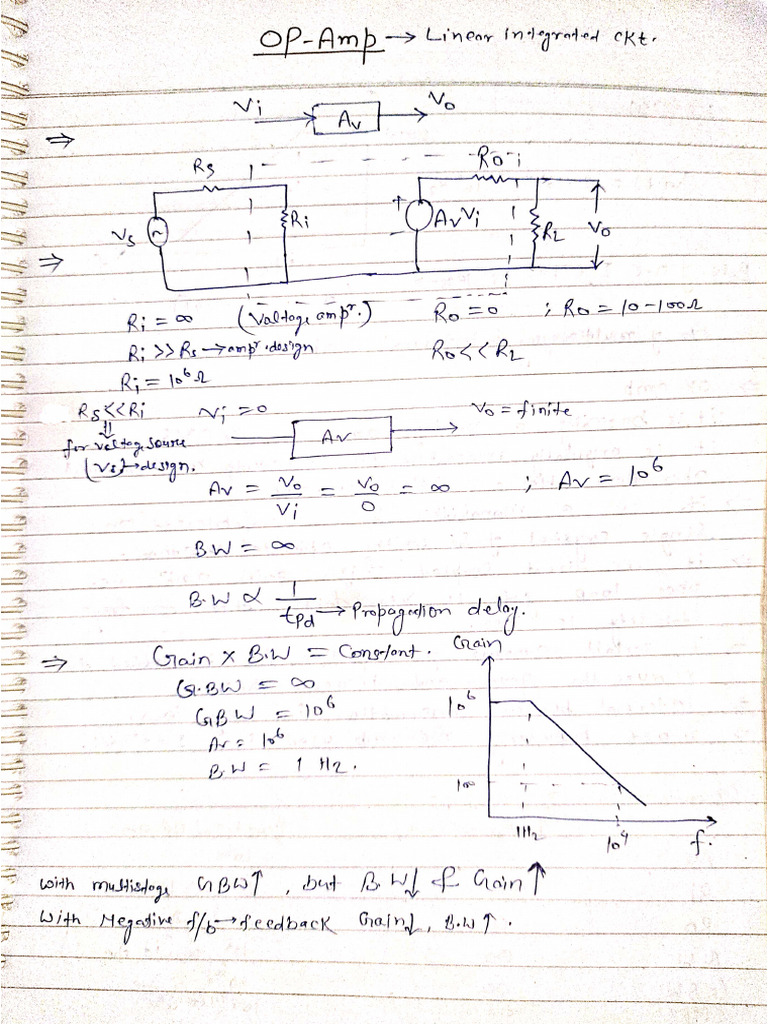 OP-Amp → Linear integrated ckt.
Vi Av Vo
⇒
Rs Ro
Vs Ri + - AvVi RL Vo
⇒
Ri = ∞ (Valtage ampr.) Ro = 0 ; Ro = 10-100Ω
Ri >> Rs → ampr. design Ro << RL
Ri = 10⁶Ω
Rs << Ri Vi = 0 Av Vo = finite
⇓
for voltage source
(Vs) → design.
Av = Vo/Vi = Vo/0 = ∞ ; Av = 10⁶
BW = ∞
B.W ∝ 1/tpd → Propagation delay.
⇒ Gain × B.W = Constant. Gain
G.BW = ∞
GBW = 10⁶ 10⁶
Av = 10⁶
B.W = 1 Hz.
100
1Hz 10⁴ f.
with multistage GBW↑, but B.W↓ & Gain↑
With Negative f/b → feedback Gain↓, B.W↑.